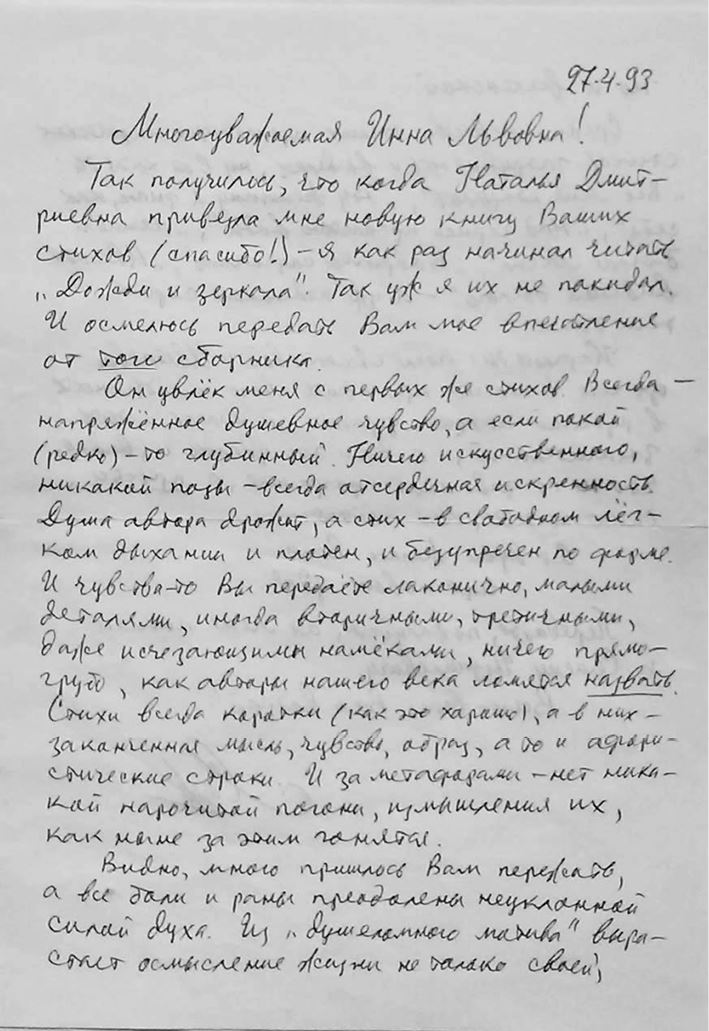 27.4.93
Многоуважаемая Инна Львовна!
Так получилось, что когда Наталья Дмит-
риевна привезла мне новую книгу Ваших
стихов (спасибо!) – я как раз начинал читать
„Дожди и зеркала“. Так уж я их не покидал.
И осмелюсь передать Вам мое впечатление
от того сборника.
Он увлёк меня с первых же стихов. Всегда –
напряжённое душевное чувство, а если покой
(редко) – то глубинный. Ничего искусственного,
никакой позы – всегда отсердечная искренность.
Душа автора дрожит, а стих – в свободном лёг-
ком дыхании и плотен, и безупречен по форме.
И чувства-то Вы передаёте лаконично, малыми
деталями, иногда вторичными, третичными,
даже исчезающими намёками, ничего прямо-
грубо, как авторы нашего века ломятся назвать.
Стихи всегда коротки (как это хорошо), а в них –
законченная мысль, чувство, образ, а то и афори-
стические строки. И за метафорами – нет ника-
кой нарочитой погони, измышления их,
как ныне за этим гонятся.
Видно, много пришлось Вам пережить,
а все боли и раны преодолены неуклонной
силой духа. Из „душеломного мотива“ выра-
стает осмысление жизни не только своей,